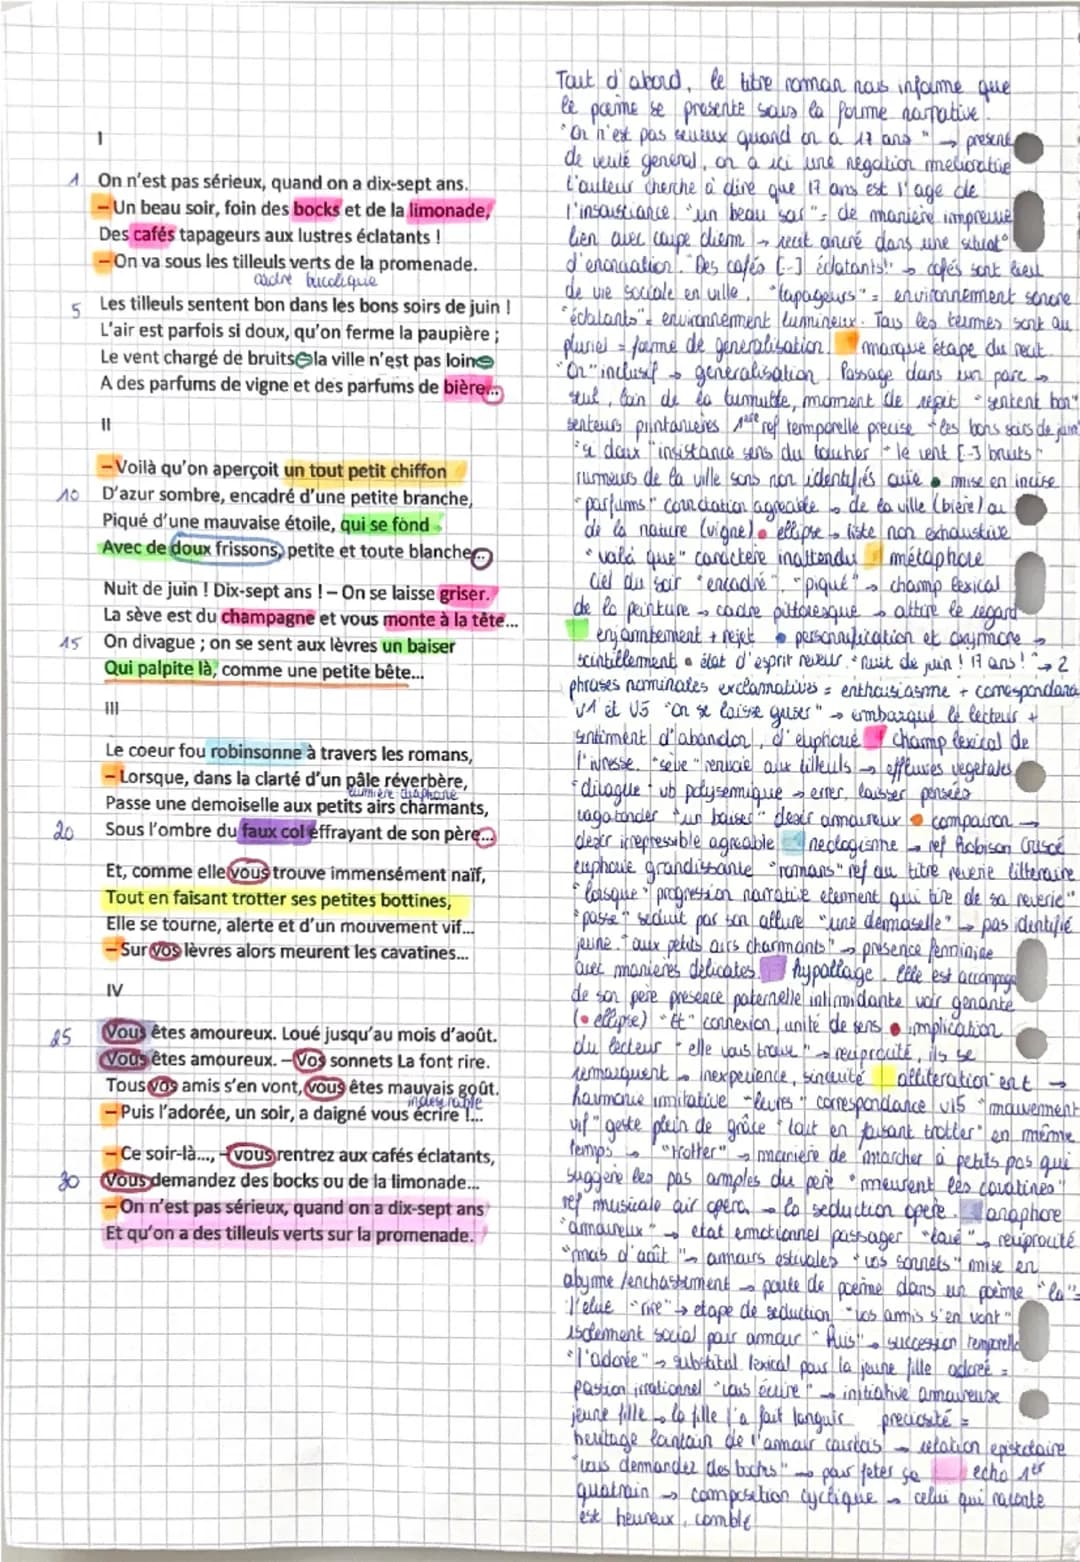 I
1 On n'est pas sérieux, quand on a dix-sept ans.
– Un beau soir, foin des bocks et de la limonade,
Des cafés tapageurs aux lustres éclatants !
– On va sous les tilleuls verts de la promenade.
cadre bucolique
5 Les tilleuls sentent bon dans les bons soirs de juin !
L'air est parfois si doux, qu'on ferme la paupière ;
Le vent chargé de bruits – la ville n'est pas loin –
A des parfums de vigne et des parfums de bière...
II
– Voilà qu'on aperçoit un tout petit chiffon
10 D'azur sombre, encadré d'une petite branche,
Piqué d'une mauvaise étoile, qui se fond
Avec de doux frissons, petite et toute blanche...
Nuit de juin ! Dix-sept ans ! – On se laisse griser.
La sève est du champagne et vous monte à la tête...
15 On divague ; on se sent aux lèvres un baiser
Qui palpite là, comme une petite bête...
III
Le coeur fou robinsonne à travers les romans,
– Lorsque, dans la clarté d'un pâle réverbère,
lumière diaphane
Passe une demoiselle aux petits airs charmants,
20 Sous l'ombre du faux col effrayant de son père...
Et, comme elle vous trouve immensément naïf,
Tout en faisant trotter ses petites bottines,
Elle se tourne, alerte et d'un mouvement vif...
– Sur vos lèvres alors meurent les cavatines...
IV
25 Vous êtes amoureux. Loué jusqu'au mois d'août.
Vous êtes amoureux. – Vos sonnets La font rire.
Tous vos amis s'en vont, vous êtes mauvais goût.
indésirable
– Puis l'adorée, un soir, a daigné vous écrire !...
– Ce soir-là..., – vous rentrez aux cafés éclatants,
30 Vous demandez des bocks ou de la limonade...
– On n'est pas sérieux, quand on a dix-sept ans
Et qu'on a des tilleuls verts sur la promenade.
Tout d'abord, le titre roman nous informe que
le poème se présente sous la forme narrative.
"On n'est pas serieux quand on a 17 ans" → présent
de verité general, on a ici une négation meliorative
l'auteur cherche à dire que 17 ans est l'age de
l'insouciance, "un beau soir" = de manière imprevue
lien avec carpe diem → recit ancré dans une situat°
d'enonciation. "Des cafés [-] éclatants!" → cafés sont lieu
de vie sociale en ville, "tapageurs" = environnement sonore
"éclatants" = environnement lumineux. Tous les termes sont au
pluriel = forme de généralisation. marque étape du recit
"On" inclusif → generalisation. Passage dans un parc →
seul, loin de la tumulte, moment de répit "sentent bon"
senteurs printanières 1ère ref temporelle precise "les bons soirs de juin"
"si doux" insistance sens du toucher "le vent [-] bruits"
rumeurs de la ville sons non identifiés ouie • mise en incise
"parfums" connotation agreable → de la ville (bière) ou
de la nature (vigne) • ellipse → liste non exhaustive
"voilà que" caractère inattendu métaphore
ciel du soir "encadré", "piqué" → champ lexical
de la peinture → cadre pittoresque → attire le regard
enjambement + rejet • personnification et oxymore →
scintillement • état d'esprit reveur. "Nuit de juin ! 17 ans !" → 2
phrases nominales exclamatives = enthousiasme + correspondance
V1 et V5 "On se laisse griser" → embarqué le lecteur +
sentiment d'abandon, d'euphorie champ lexical de
l'ivresse. "sève" renvoie aux tilleuls → effluves vegetales
"divague" vb polysemique → errer, laisser pensées
vagabonder "un baiser" désir amoureux • comparaison →
desir irrepressible agreable neologisme → ref Robison Crusoé
euphorie grandissante "romans" ref au titre reverie litteraire
"lorsque" progression narrative element qui tire de sa reverie"
"passe" seduit par son allure "une demoiselle" → pas identifié
jeune "aux petits airs charmants" → présence feminine
avec manieres delicates. hypallage. Elle est accompagné
de son pere presence paternelle intimidante voir genante
(• ellipse) "Et" connexion, unité de sens • implication
du lecteur "elle vous trouve" → reciprocité, ils se
remarquent → inexperience, sincerité alliteration en t →
harmonie imitative "levres" correspondance v15 "mouvement
vif" geste plein de grâce "tout en faisant trotter" en même
temps → "trotter" → manière de marcher à petits pas qui
suggère les pas amples du père "meurent les cavatines"
ref musicale air opera → la seduction opere. anaphore
"amoureux" → etat emotionnel passager "loué" → reciprocité
"mois d'août" → amours estivales "vos sonnets" mise en
abyme /enchassement → poète de poeme dans un poème "la" =
l'elue "rire" → etape de séduction "vos amis s'en vont"
isolement social par amour "Puis" → succession temporelle
"l'adorée" → substitut lexical pour la jeune fille adoré =
passion irrationnel "vous écrire" → initiative amoureuse
jeune fille → la fille l'a fait languir préciosité =
heritage lointain de l'amour courtois → relation epistolaire
"vous demandez des bocks" → pour feter ça echo 1er
quatrain → composition cyclique → celui qui raconte
est heureux, comblé